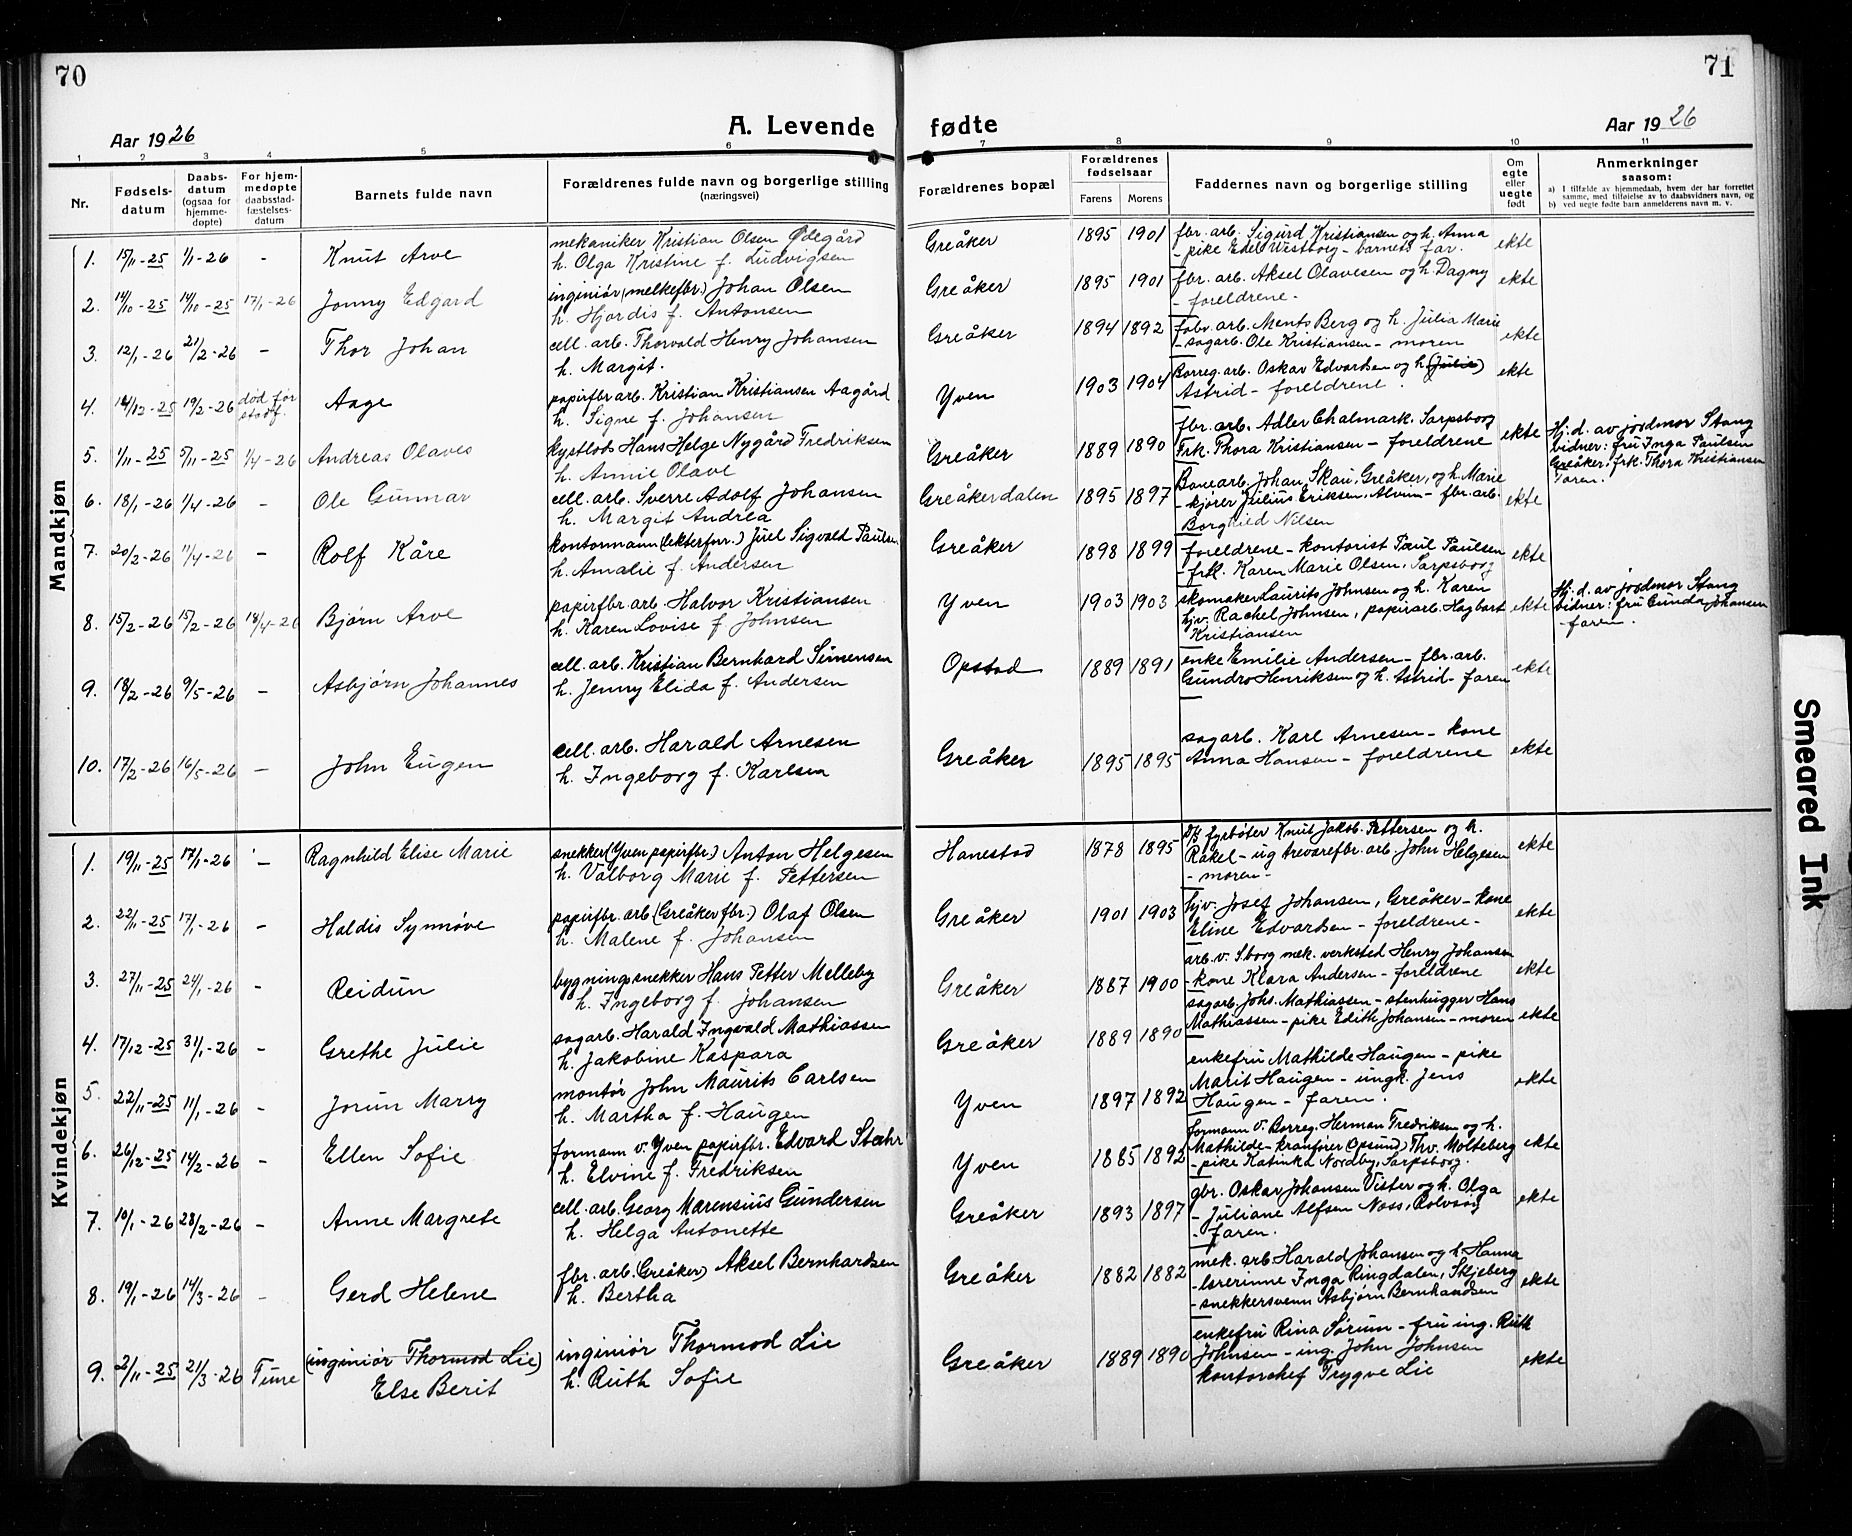 70
71
Aar 1926
A. Levende fødte
Aar 1926
1 2 3 4 5 6 7 8 9 10 11
Nr.
Fødsels-
datum
Daabs-
datum
(ogsaa for
hjemme-
døpte)
For hjem-
medøpte
daabsstad-
fæstelses-
datum
Barnets fulde navn
Forældrenes fulde navn og borgerlige stilling
(næringsvei)
Forældrenes bopæl
Forældrenes
fødselsaar
Farens Morens
Faddernes navn og borgerlige stilling
Om
egte
eller
uegte
født
Anmerkninger
saasom:
a) I tilfælde av hjemmedaab, hvem der har forrettet
samme, med tilføielse av to daabsvidners navn, og
b) ved uegte fødte barn anmelderens navn m. v.
Mandkjøn
1. 15/11-25 1/1-26 - Knut Arve
mekaniker Kristian Olsen Ødegård
h. Olga Kristine f. Ludvigsen
Greåker 1895 1901
fbr. arb. Sigurd Kristiansen og h. Anna
- pike Edel Westborg - barnets far.
ekte
2. 14/10-25 14/10-25 17/1-26 Jonny Edgard
inginiør (melkefbr.) Johan Olsen
h. Hjordis f. Antonsen
Greåker 1895 1901
fbr. arb. Aksel Olavesen og h. Dagny
- foreldrene -
ekte
3. 12/1-26 21/2-26 - Thor Johan
cell. arb. Thorvald Henry Johansen
h. Margit.
Greåker 1894 1892
fabr. arb. Ments Berg og h. Julia Marie
- sagarb. Ole Kristiansen - moren
ekte
4. 14/12-25 19/2-26 død før stadf. Aage
papirfbr. arb. Kristian Kristiansen Aagård
h. Signe f. Johansen
Yven 1903 1904
Borreg. arb. Oskar Edvardsen og h. (Julie)
Astrid - foreldrene.
ekte
5. 1/11-25 5/11-25 1/4-26 Andreas Olaves
kystlods Hans Helge Nygård Fredriksen
h. Annie Olave
Greåker 1889 1890
fbr. arb. Adler Chalmark. Sarpsborg
Frk. Thora Kristiansen - foreldrene
ekte
Hj. d. av jordmor Stang
vidner: fru Inga Paulsen
Greåker, frk. Thora Kristiansen
6. 18/1-26 1/4-26 - Ole Gunnar
cell. arb. Sverre Adolf Johansen
h. Margit Andrea
Greåkerdalen 1895 1897
Johan Skau, Greåker, og h. Marie
- kjører Julius Eriksen, Alvim - fbr. arb.
Nilsen
ekte
7. 20/2-26 11/4-26 - Rolf Kåre
kontormann Juel Sigvald Paulsen
h. Amalie f. Andersen
Greåker 1898 1899
foreldrene - kontorist Paul Paulsen
- frk. Karen Marie Olsen, Sarpsborg
ekte
8. 15/2-26 15/2-26 18/4-26 Bjørn Arve
papirfbr. arb. Halvor Kristiansen
h. Karen Lovise f. Johnsen
Yven 1903 1903
skomaker Laurits Johnsen og h. Karen
hjv. Rachel Johnsen, papirarb. Hagbart
Kristiansen
ekte
Hj. d. av jordmor Stang
vidner: fru Gunda Johansen
- faren.
9. 18/2-26 9/5-26 - Asbjørn Johannes
cell. arb. Kristian Bernhard Simensen
h. Jenny Elida f. Andersen
Opstad 1889 1891
enke Emilie Andersen - fbr. arb.
Gundro Henriksen og h. Astrid - faren
ekte
10. 17/2-26 16/5-26 - John Eugen
cell. arb. Harald Arnesen
h. Ingeborg f. Karlsen
Greåker 1895 1895
sagarb. Karl Arnesen - kone
Anna Hansen - foreldrene
ekte
Kvindekjøn
1. 19/11-25 17/1-26 - Ragnhild Elise Marie
snekker (Yven papirfbr.) Anton Helgesen
h. Valborg Marie f. Pettersen
Hanestad 1878 1895
fyrbøter Knut Jakob Pettersen og h.
Rakel - ug trevarefbr. arb. John Helgesen
- moren -
ekte
2. 22/11-25 17/1-26 - Haldis Synnøve
papirfbr. arb. (Greåker fbr.) Olaf Olsen
h. Malene f. Johansen
Greåker 1901 1903
hjv. Josef Johansen, Greåker - kone
Eline Edvardsen - foreldrene -
ekte
3. 27/11-25 24/1-26 - Reidun
bygningssnekker Hans Petter Melleby
h. Ingeborg f. Johansen
Greåker 1887 1900
arb. v. S.borg mek. verksted Henry Johansen
- kone Klara Andersen - foreldrene
ekte
4. 17/12-25 31/1-26 - Grethe Julie
sagarb. Harald Ingvald Mathiassen
h. Jakobine Kaspara
Greåker 1889 1890
sagarb. Johs. Mathiassen - stenhugger Hans
Mathiassen - pike Edith Johansen - moren
ekte
5. 22/11-25 11/1-26 - Jorun Marry
montør John Maurits Carlsen
h. Martha f. Haugen
Yven 1897 1892
enkefru Mathilde Haugen - pike
Marit Haugen - ungk. Jens
Haugen - faren.
ekte
6. 26/12-25 14/2-26 - Ellen Sofie
formann v. Yven papirfbr. Edvard Stæhr
h. Elvine f. Fredriksen
Yven 1885 1892
formann v. Borreg. Herman Fredriksen og h.
Mathilde - kranfører (Opsund) Thv. Molteberg
- pike Katinka Nordby, Sarpsborg.
ekte
7. 10/1-26 28/2-26 - Anne Margrete
cell. arb. Georg Marensius Gundersen
h. Helga Antonette
Greåker 1893 1897
gbr. Oskar Johansen Vister og h. Olga
- Juliane Alfsen Nass, Rolvsøy
- faren.
ekte
8. 19/1-26 14/3-26 - Gerd Helene
fbr. arb. (Greåker) Aksel Bernhardsen
h. Bertha
Greåker 1882 1882
mek. arb Harald Johansen og h. Hanna
- lærerinne Inga Ringdalen, Skjeberg
- snekkersvenn Asbjørn Bernhardsen
ekte
9. 2/11-25 21/3-26 Tune (inginiør Thormod Lie)
Else Berit
inginiør Thormod Lie
h. Ruth Sofie
Greåker 1889 1890
enkefru Rina Sørum - fru ing. Ruth
Johnsen - ing. John Johnsen
kontorchef Trygve Lie
ekte
Smeared Ink